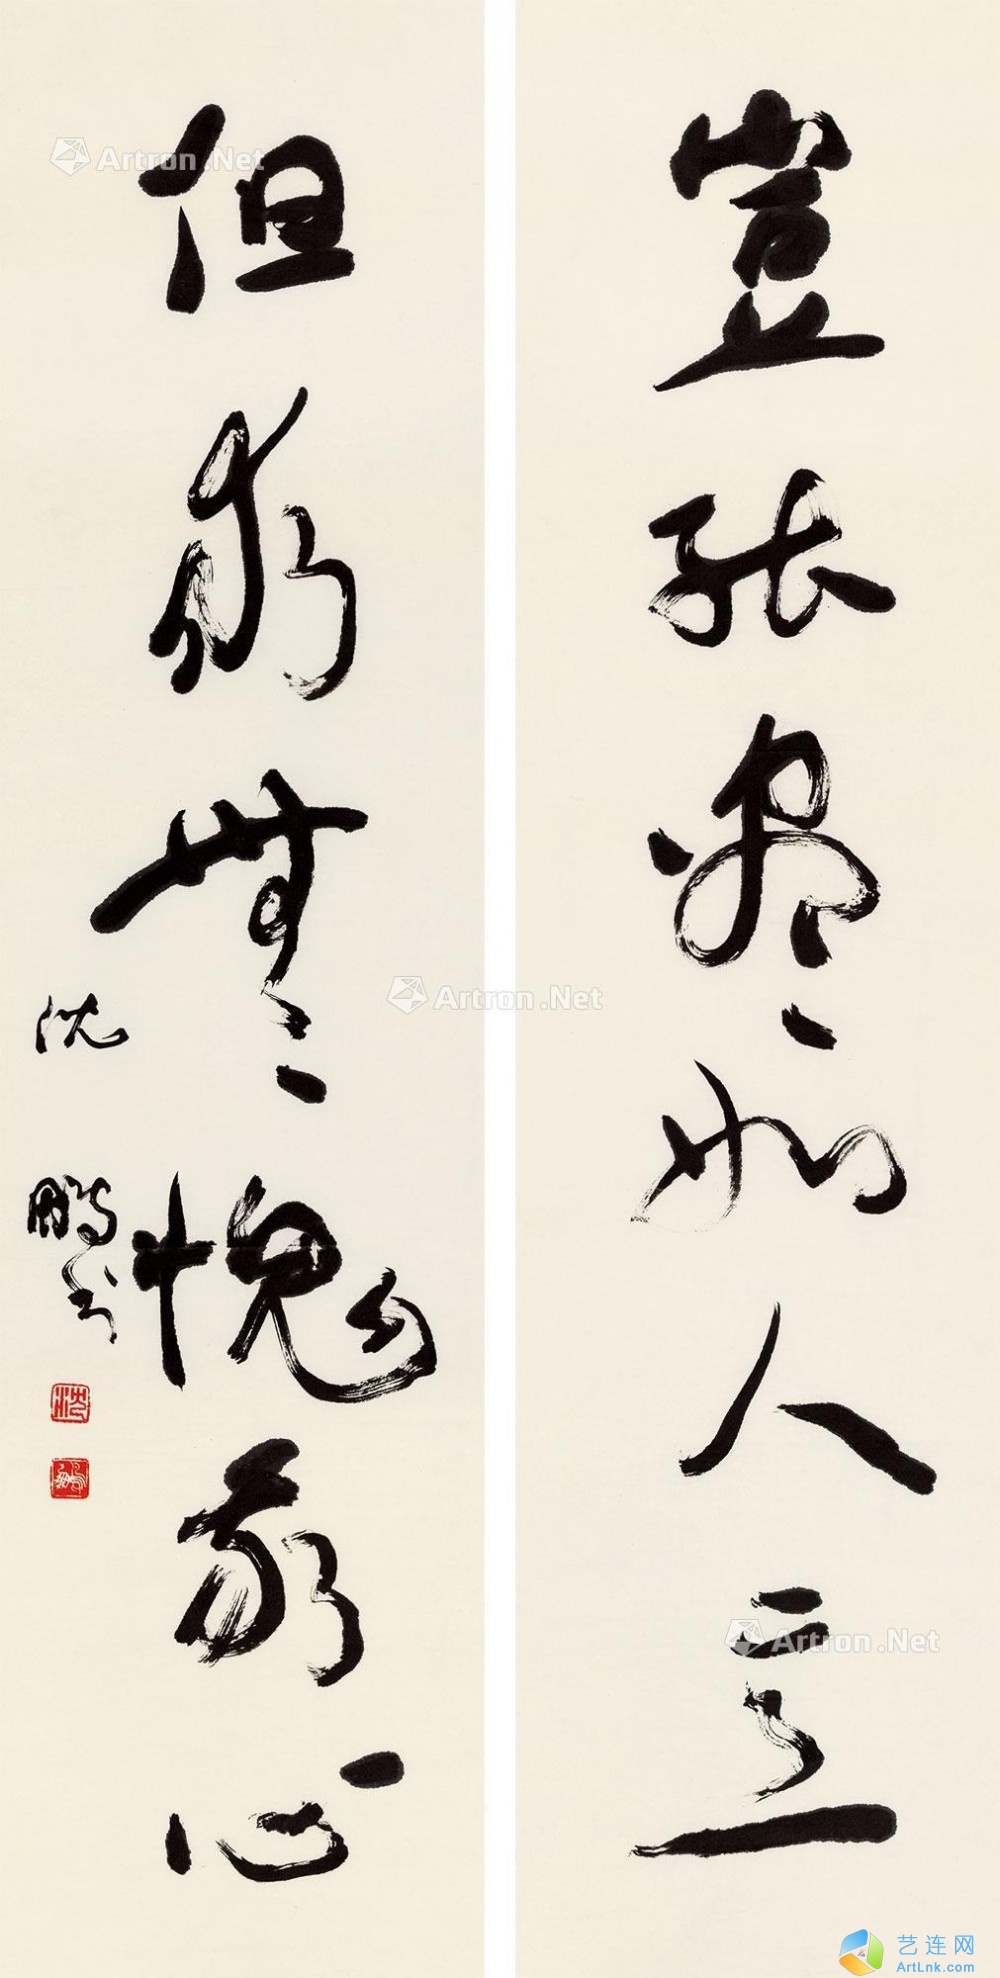 岂能尽如人意
但求无愧我心
沈鹏书
沈
鹏
Artron.Net
Artron.Net
Artron.Net
艺连网
ArtLnk.com